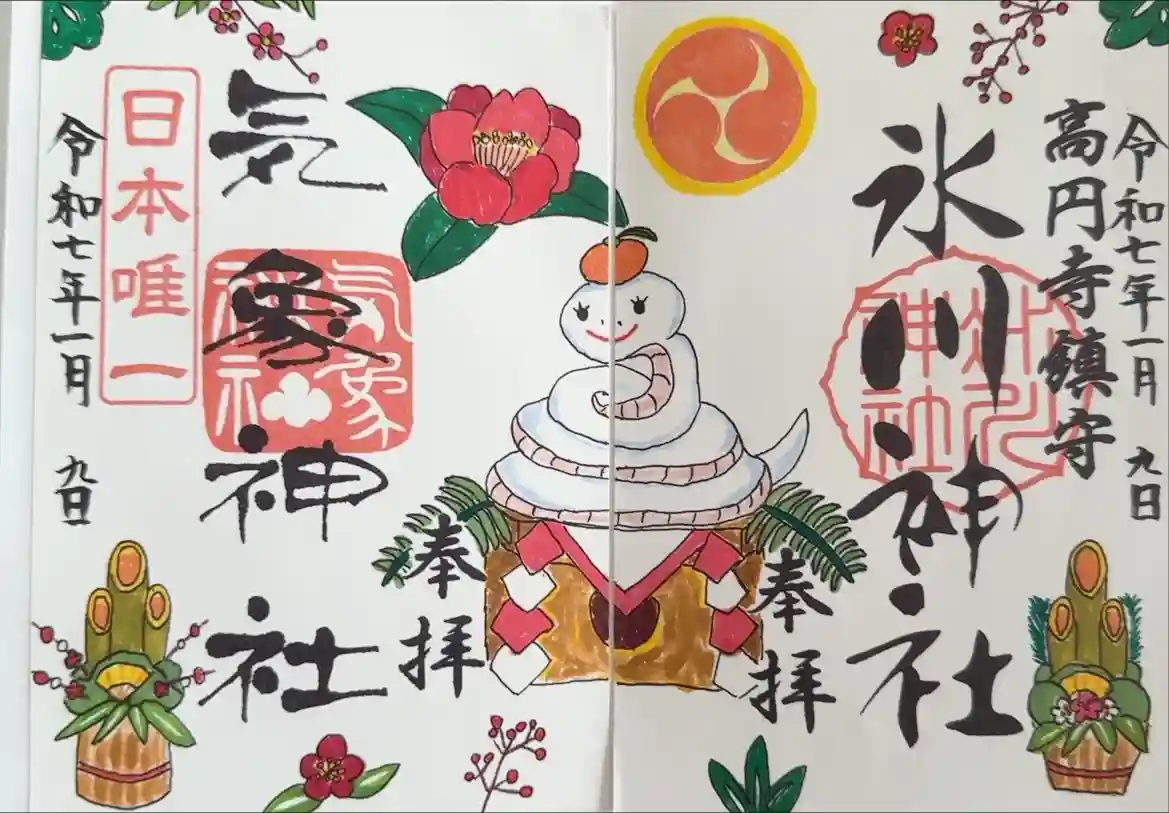 令和七年一月九日
高円寺鎮守
氷川神社
氷川神社
奉拝
奉拝
気象神社
気象神社
日本唯一
令和七年一月九日